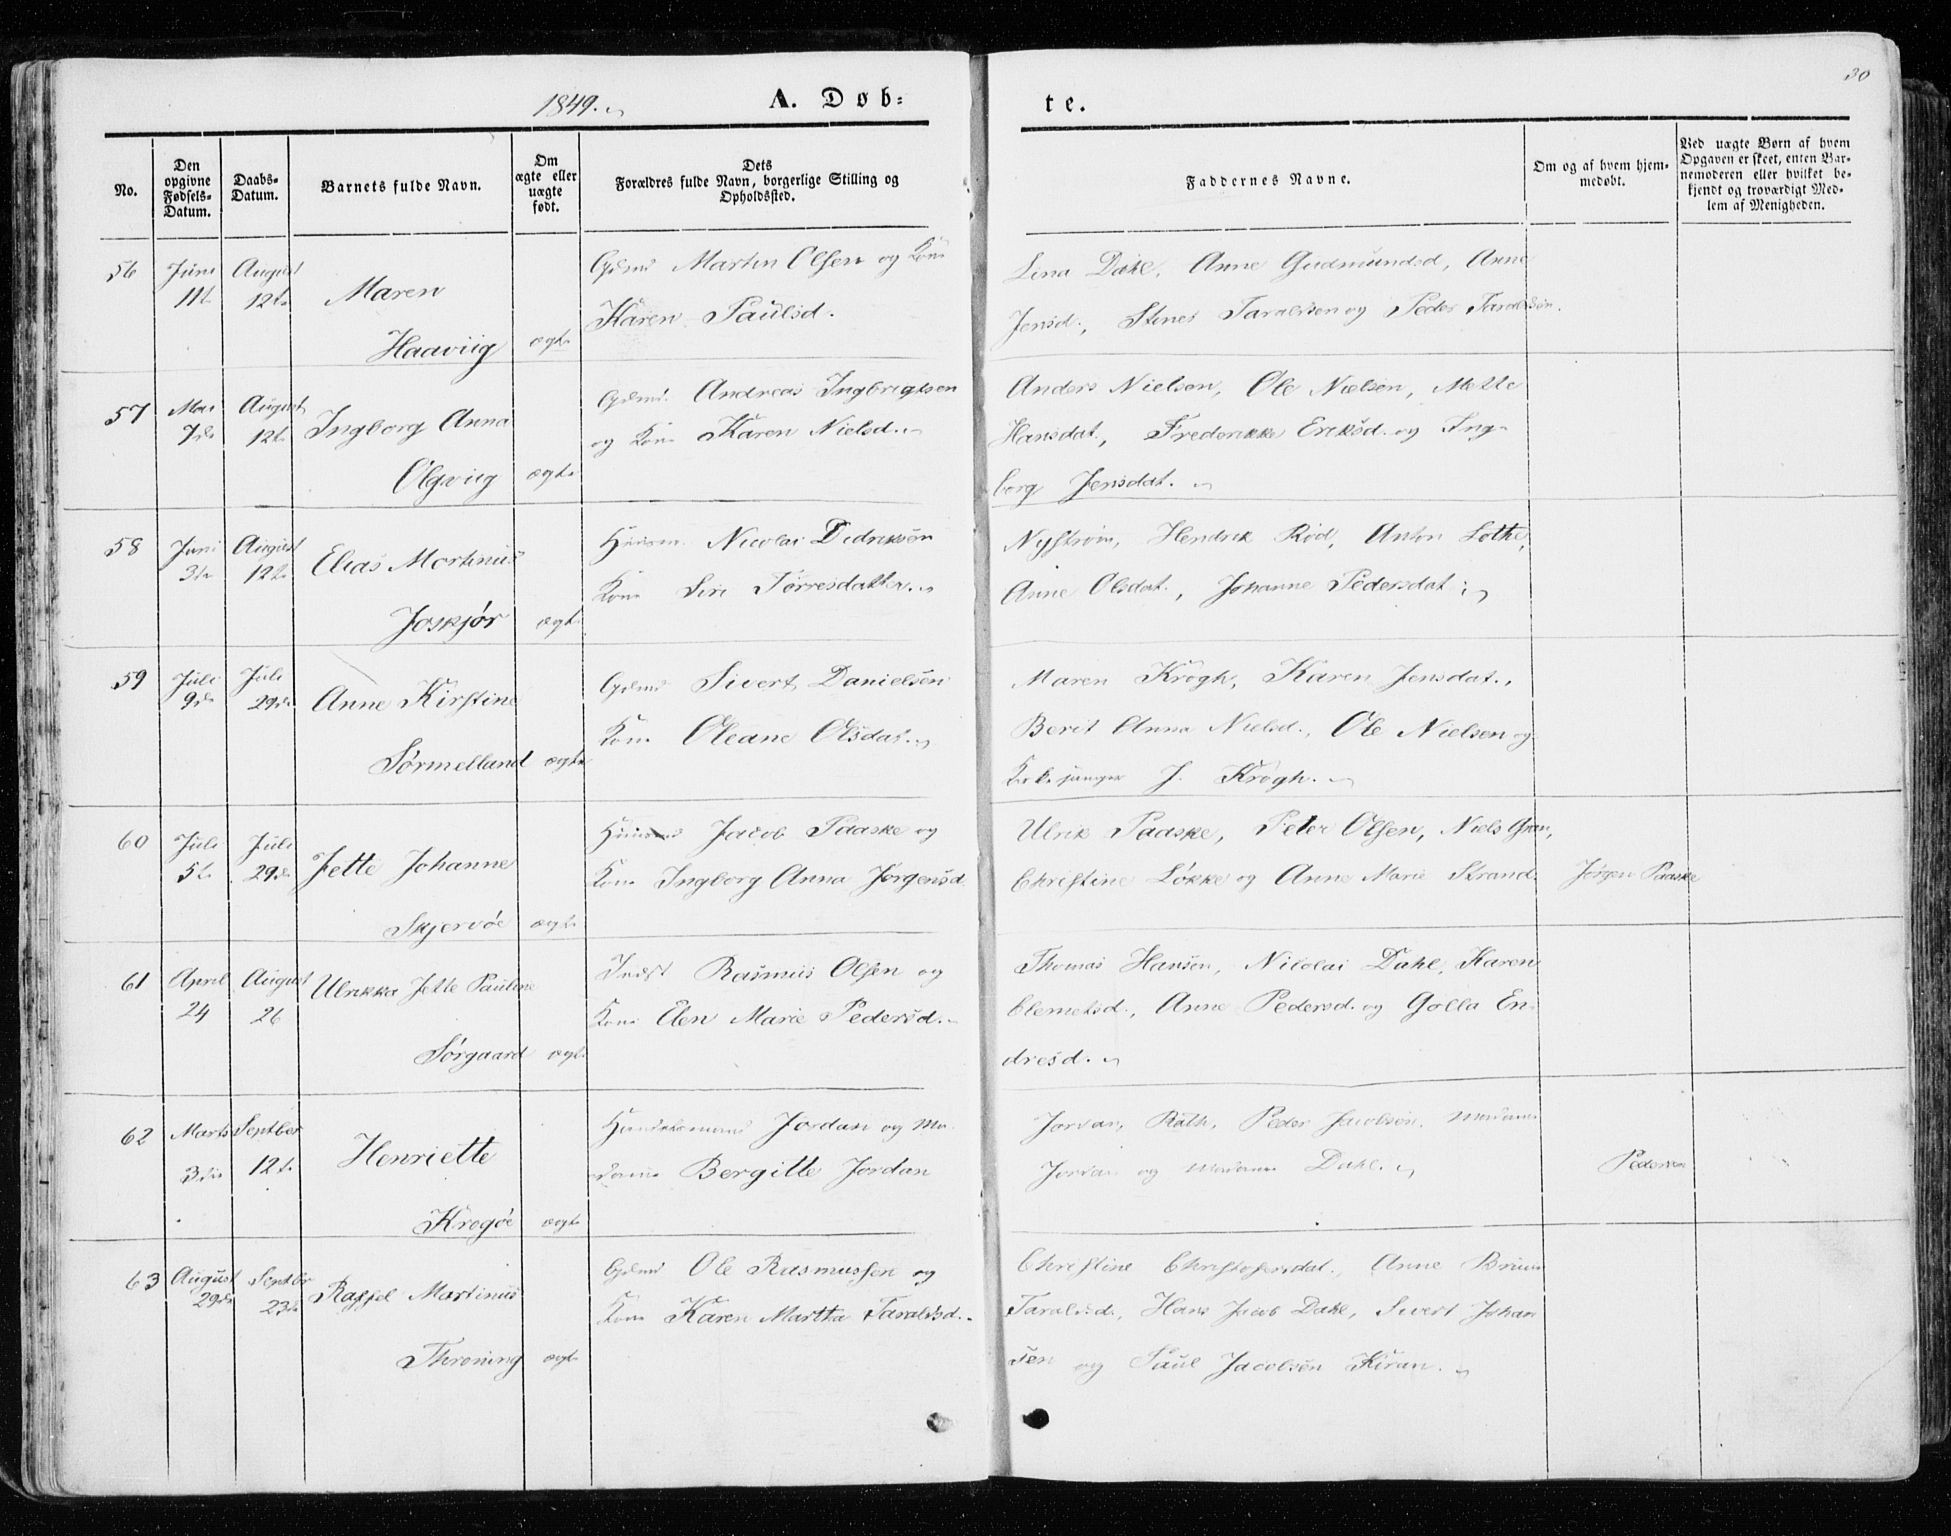 1849.
A. Døb-
te.
30
No.
Den opgivne Fødsels-Datum.
Daabs-Datum.
Barnets fulde Navn.
Om ægte eller uægte født.
Dets Forældres fulde Navn, borgerlige Stilling og Opholdssted.
Faddernes Navne.
Om og af hvem hjem-medøbt.
Ved uægte Børn af hvem Opgaven er skeet, enten Bar-nemoderen eller hvilket be-kjendt og troværdigt Med-lem af Menigheden.
56 Juni August Gdmd Martin Olsen og Kone Lina Dahl, Anne Gudmundsd, Anne
11te 12te Maren Karen Paulsd. Jensd., Stenes Taraldsen og Peder Taraldsøn.
Haaviig ægte
57 Mai August Gdmd. Andreas Ingbrigtsen Anders Nielsen, Ole Nielsen, Mette
7de 12te Ingborg Anna og Kone Karen Nielsd. Hansdat., Frederikke Eriksd. og Ing-
Olgviig ægte borg Jensdat.
58 Juni August Huusm. Nicolai Didriksøn Nystrøm, Hendrik Rød, Anton Lothe,
3die 12te Elias Mortinus Kone Siri Torresdatter. Anne Olsdat., Johanne Pedersdat.
Joskjør ægte
59 Juli Juli Gdmd Sivert Danielsen Maren Krogh, Karen Jensdat.,
9de 29de Anne Kirstine Kone Oleane Olsdat. Berit Anna Nielsd., Ole Nielsen og
Sørmelland ægte Kirkesanger J. Krogh.
60 Juli Juli Huusmd Jacob Paaske og Ulrik Paaske, Peter Olsen, Niels Gran,
5te 29de Jette Johanne Kone Ingborg Anna Jørgensd. Christine Løkke og Anne Marie Strand. Jørgen Paaske
Skjervøe ægte
61 April August Indst Rasmus Olsen og Thomas Hansen, Nicolai Dahl, Karen
24 26 Ulrikka Jette Pauline Kone Elen Marie Pedersd. Clemetsd., Anne Pedersd. og Golla En-
Sørgaard ægte dresd.
62 Marts Septber Handelsmand Jordan og Ma- Jordan, Rath, Peder Jacobsen, Madame
3die 12te Henriette dame Bergitte Jordan Jordan og Madame Dahl. Pedersen
Krogøe ægte
63 August Septbr Gdmd Ole Rasmussen og Christine Christofersdat., Anne Bruun
29de 23de Raffel Martinus Kone Karen Martha Taraldsd. Taraldsd., Hans Jacob Dahl, Sivert Johan
Throning ægte sen og Paul Jacobsen Kiran.